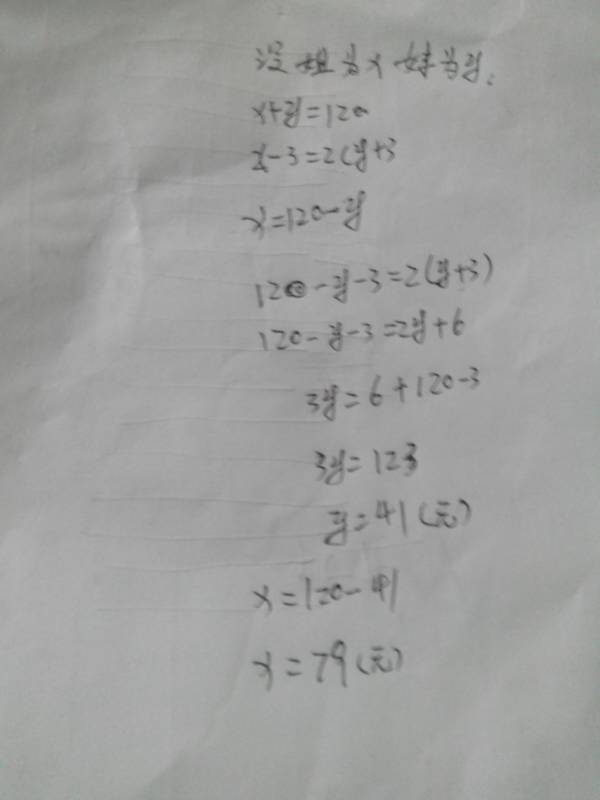 设姐为x 妹为y.
x+y=120
x-3=2(y+3
x=120-y
120-y-3=2(y+3)
120-y-3=2y+6
3y=6+120-3
3y=123
y=41(元)
x=120-41
x=79(元)